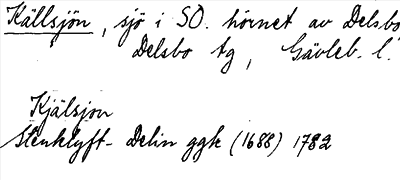 Källsjön, sjö i SO. hörnet av Delsbo
Delsbo tg, Gävleb. l.
Kjälsjon
Stenklyft- Delin ggk (1688) 1782